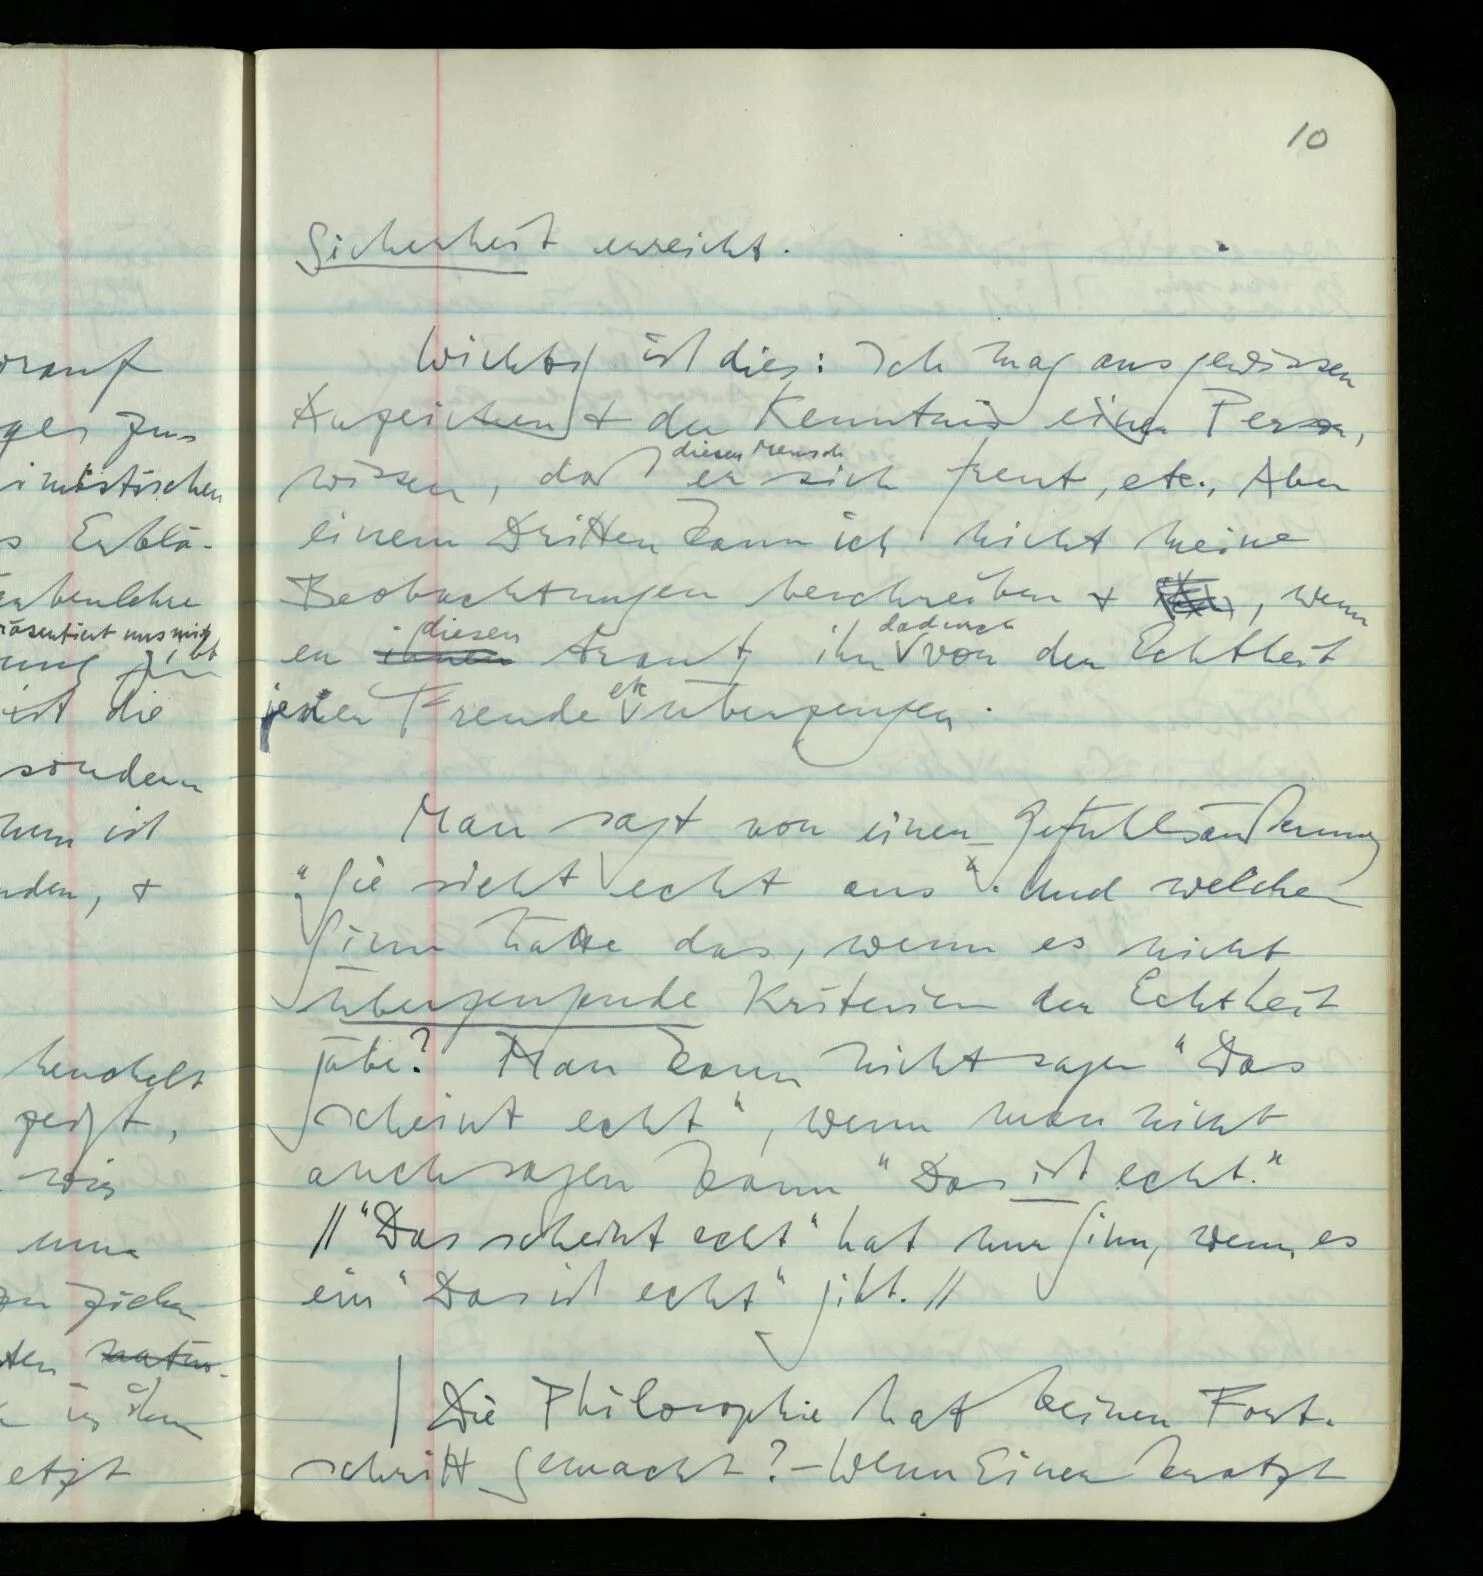 orauf
ges zu-
imistischen
s Erklä-
arbenlehre
räsentiert uns
ist die
sondern
ist
nden, +
heuchelt
zeigt,
wie
nun
zu ziehen
ten natür-
in ihm
etzt
10
Sicherheit erreicht.
Wichtig ist dies: Ich mag aus gewissen
Anzeichen + der Kenntnis einer Person,
wissen, daß er sich freut, etc., Aber
dieser Mensch
einem Dritten kann ich nicht meine
Beobachtungen beschreiben + , wenn
er ihnen traut, ihn von der Echtheit
diesen dadurch
jener Freude überzeugen.
etc
Man sagt von einer Gefühlsäußerung
"Sie sieht echt aus". Und welchen
Sinn hätte das, wenn es nicht
überzeugende Kriterien der Echtheit
gäbe? Man kann nicht sagen "Das
scheint echt", wenn man nicht
auch sagen kann "Das ist echt."
// "Das scheint echt" hat nur Sinn, wenn es
ein "Das ist echt" gibt. //
| Die Philosophie hat keinen Fort-
schritt gemacht? – Wenn Einer kratzt